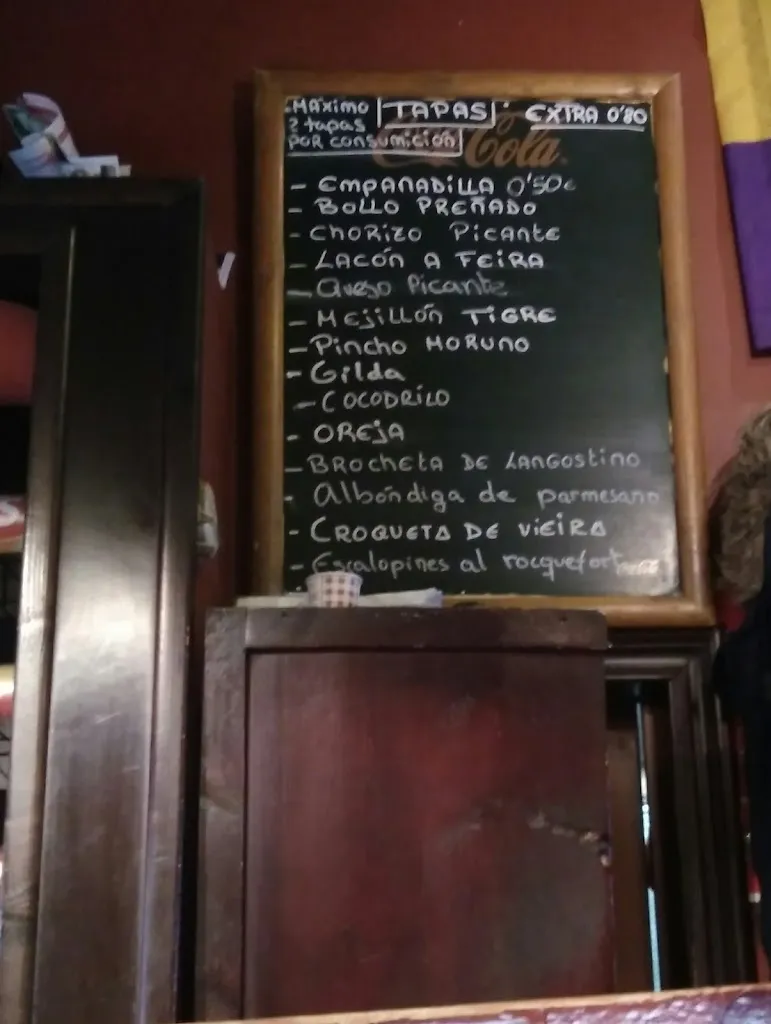 MÁximo TAPAS: EXTRA 0'80
2 tapas
por consumición
Cola
- EMPANADILLA 0'50€
- BOLLO PREÑADO
- CHORIZO PICANTE
- LACÓN A FEIRA
- Queso Picante
- MEJILLÓN TIGRE
- Pincho MORUNO
- Gilda
- COCODRILO
- OREJA
- BROCHETA DE LANGOSTINO
- Albóndiga de parmesano
- CROQUETA DE VIEIRA
- Escalopines al rocquefort